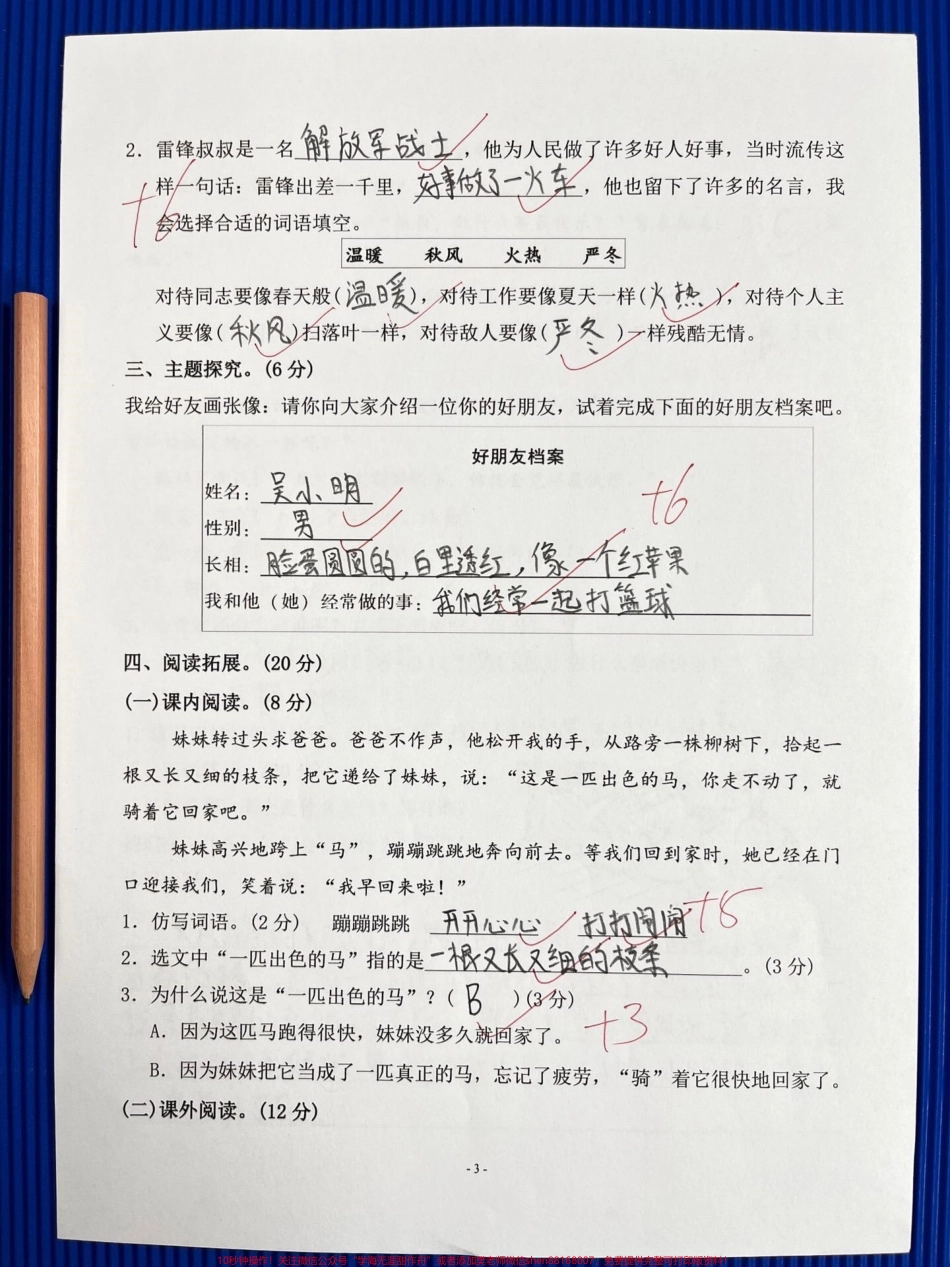 2．雷锋叔叔是一名解放军战士，他为人民做了许多好人好事，当时流传这
样一句话：雷锋出差一千里，好事做了一火车，他也留下了许多的名言，我
会选择合适的词语填空。
+6
温暖 秋风 火热 严冬
对待同志要像春天般(温暖)，对待工作要像夏天一样(火热)，对待个人主
义要像(秋风)扫落叶一样，对待敌人要像(严冬)一样残酷无情。
三、主题探究。(6分)
我给好友画张像：请你向大家介绍一位你的好朋友，试着完成下面的好朋友档案吧。
好朋友档案
姓名：吴小明
+6
性别：男
长相：脸蛋圆圆的，白里透红，像一个红苹果
我和他（她）经常做的事：我们经常一起打篮球
四、阅读拓展。(20分)
(一)课内阅读。(8分)
妹妹转过头求爸爸。爸爸不作声，他松开我的手，从路旁一株柳树下，拾起一
根又长又细的枝条，把它递给了妹妹，说：“这是一匹出色的马，你走不动了，就
骑着它回家吧。”
妹妹高兴地跨上“马”，蹦蹦跳跳地奔向前去。等我们回到家时，她已经在门
口迎接我们，笑着说：“我早回来啦！”
1．仿写词语。(2分) 蹦蹦跳跳 开开心心 打打闹闹 +5
2．选文中“一匹出色的马”指的是一根又长又细的枝条。(3分)
3．为什么说这是“一匹出色的马”？( B )(3分)
+3
A．因为这匹马跑得很快，妹妹没多久就回家了。
B．因为妹妹把它当成了一匹真正的马，忘记了疲劳，“骑”着它很快地回家了。
(二)课外阅读。(12分)
- 3 -